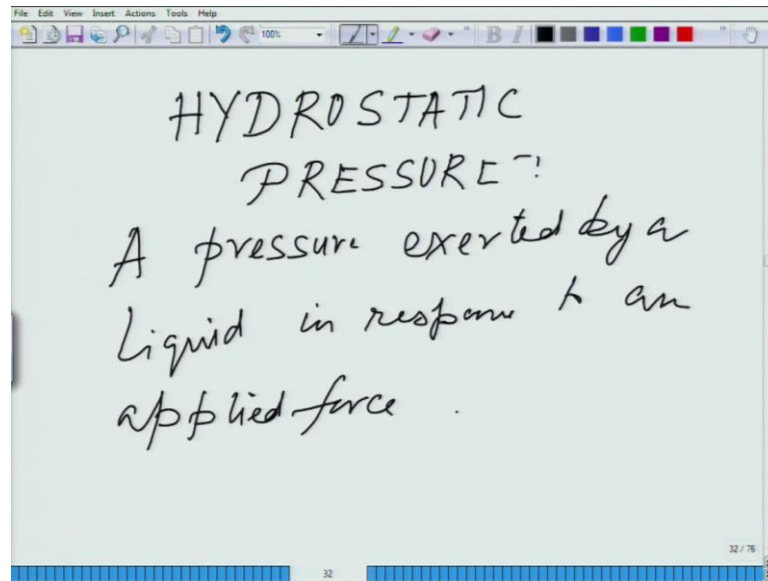 File Edit View Insert Actions Tools Help
100%
B I
HYDROSTATIC
PRESSURE :
A pressure exerted by a
Liquid in response to an
applied force .
32 / 76
32